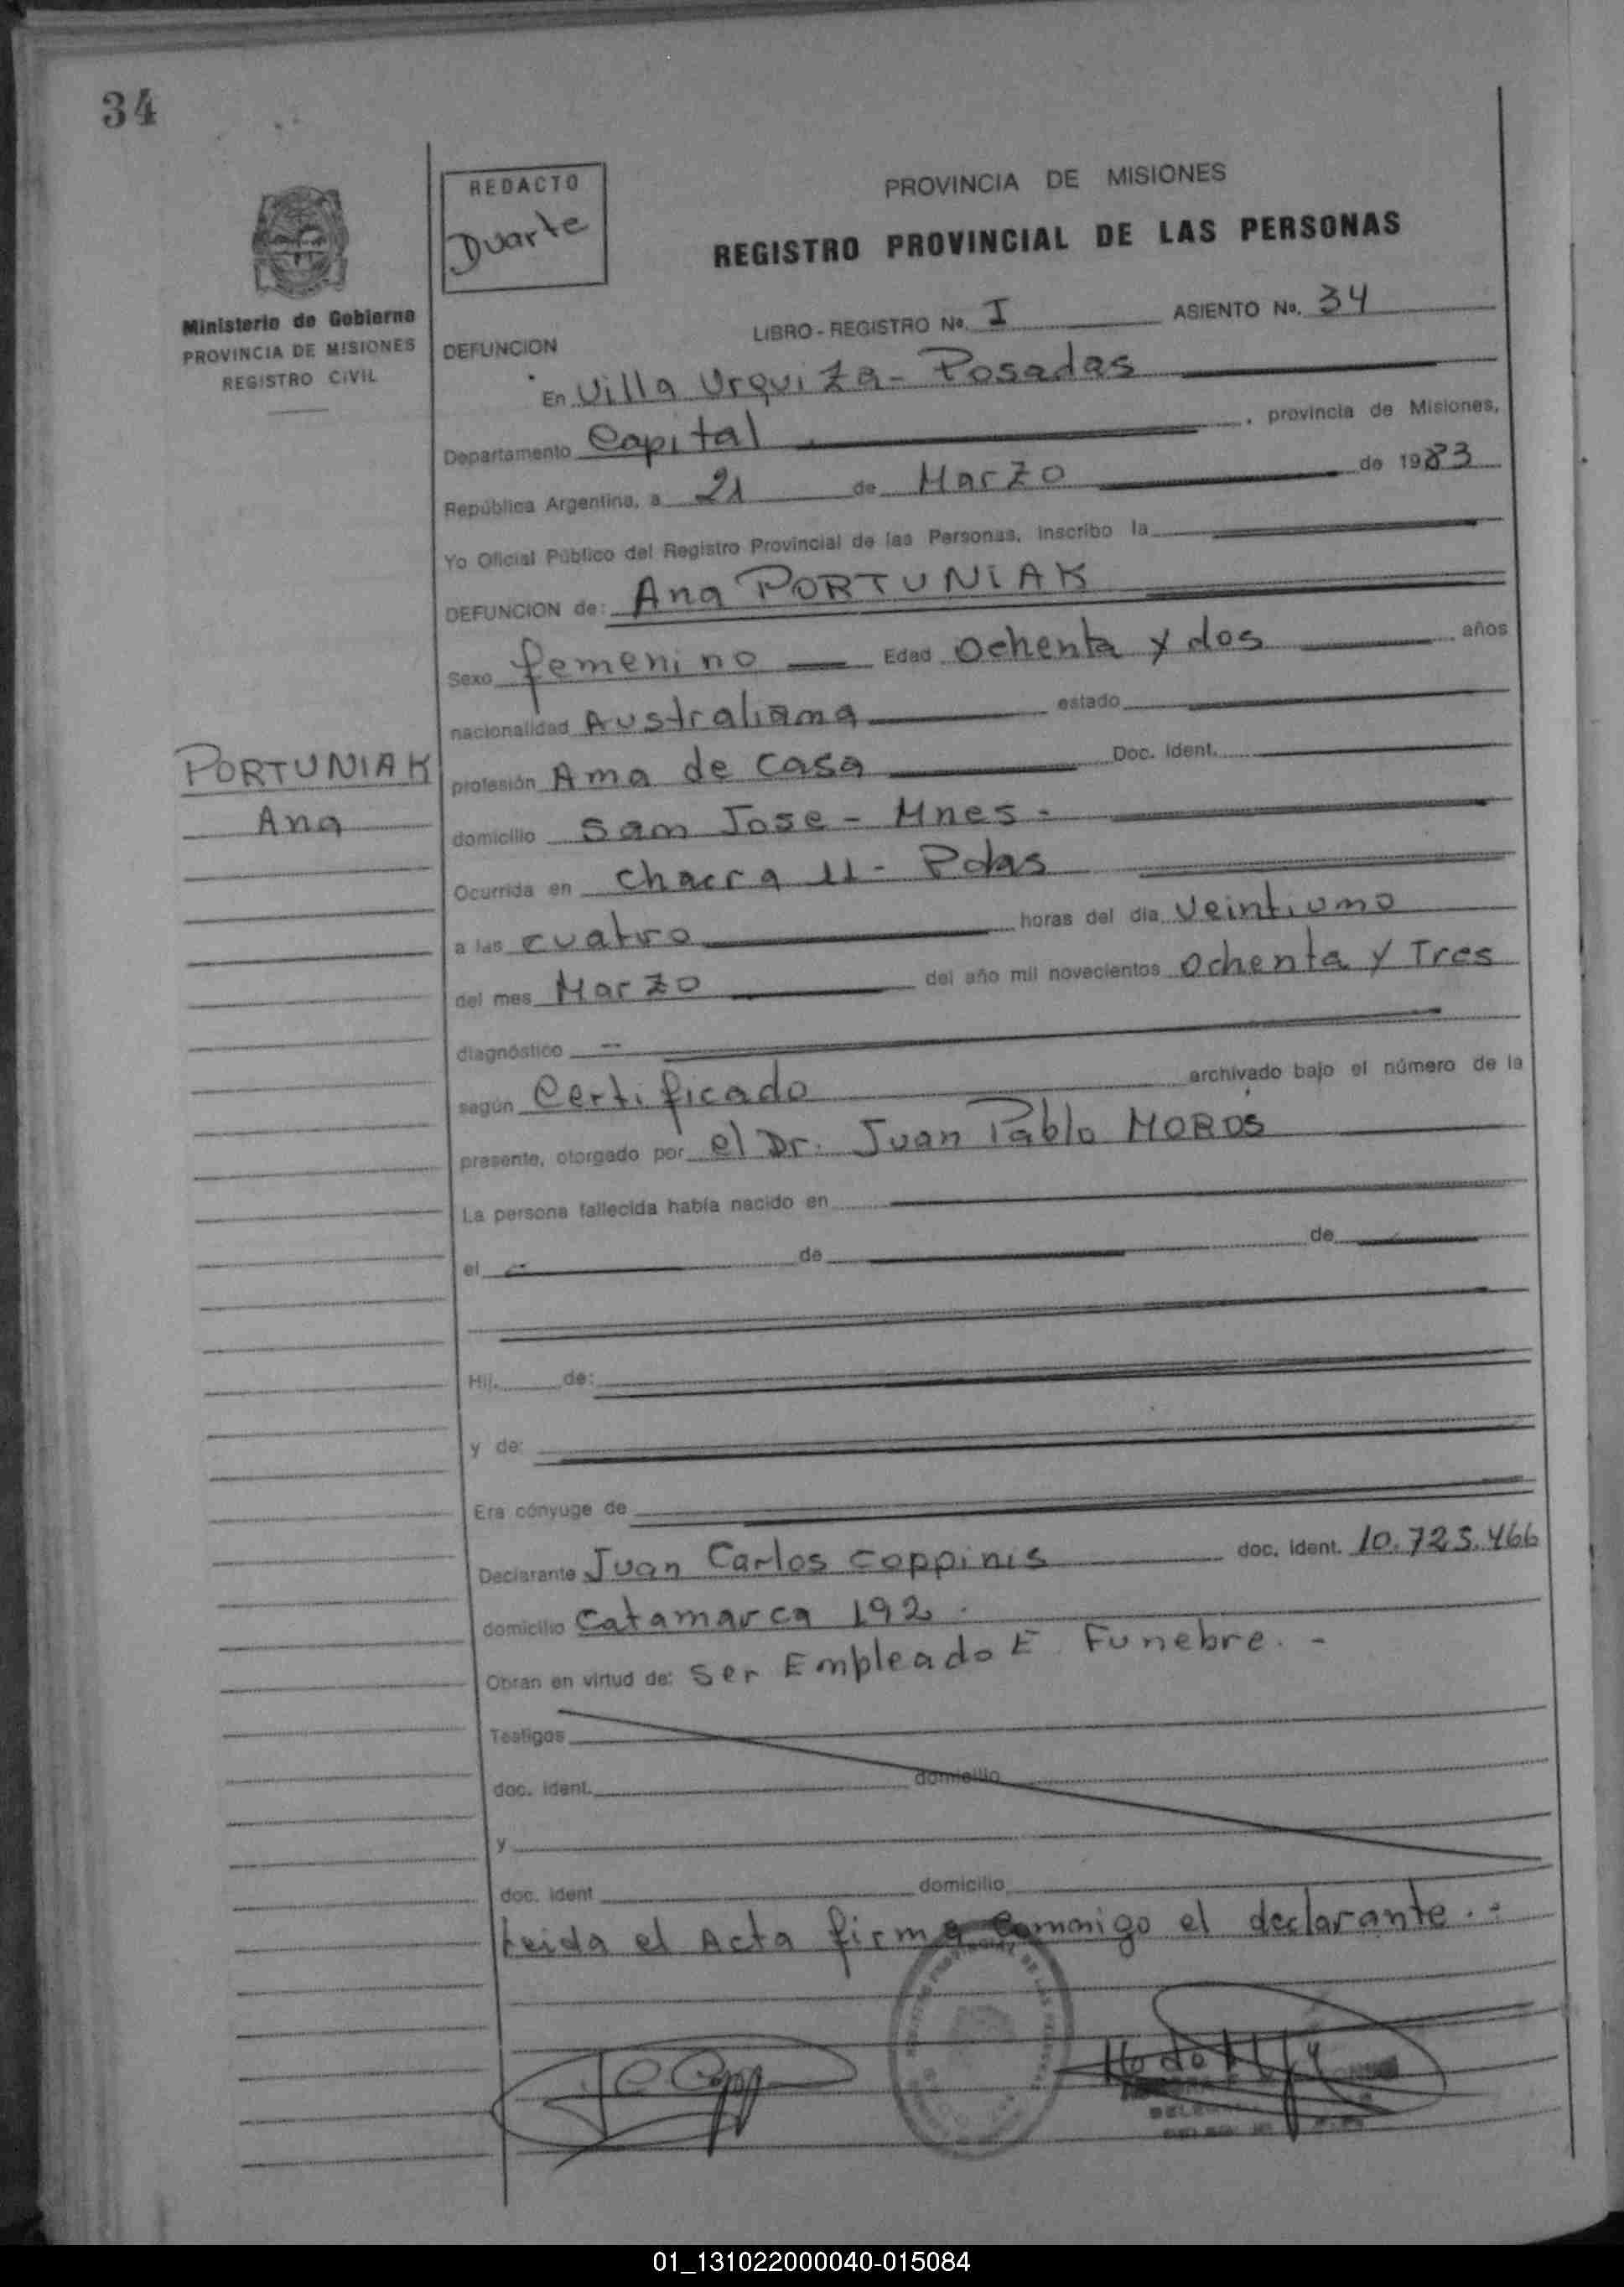 34
REDACTO
Duarte
PROVINCIA DE MISIONES
REGISTRO PROVINCIAL DE LAS PERSONAS
Ministerio de Gobierno
PROVINCIA DE MISIONES
REGISTRO CIVIL
LIBRO - REGISTRO No. I ASIENTO No. 34
DEFUNCION
En Villa Urquiza - Posadas
Departamento Capital, provincia de Misiones,
República Argentina, a 21 de Marzo de 1983
Yo Oficial Público del Registro Provincial de las Personas, inscribo la
DEFUNCION de: Ana PORTUNIAK
Sexo femenino Edad Ochenta y dos años
nacionalidad Australiana estado
PORTUNIAK
Ana
profesión Ama de casa Doc. Ident.
domicilio San Jose - Mnes -
Ocurrida en chacra 11 - Pdas
a las cuatro horas del día veintiuno
del mes Marzo del año mil novecientos Ochenta y Tres
diagnóstico --
según Certificado archivado bajo el número de la
presente, otorgado por el Dr. Juan Pablo MOROS
La persona fallecida había nacido en
el de de
Hij. de:
y de:
Era cónyuge de
Declarante Juan Carlos Coppinis doc. Ident. 10.725.466
domicilio Catamarca 192.
Obran en virtud de: Ser Empleado E. Funebre. -
Testigos
doc. ident. domicilio
y
doc. ident domicilio
Leida el Acta firma conmigo el declarante. -
01_131022000040-015084